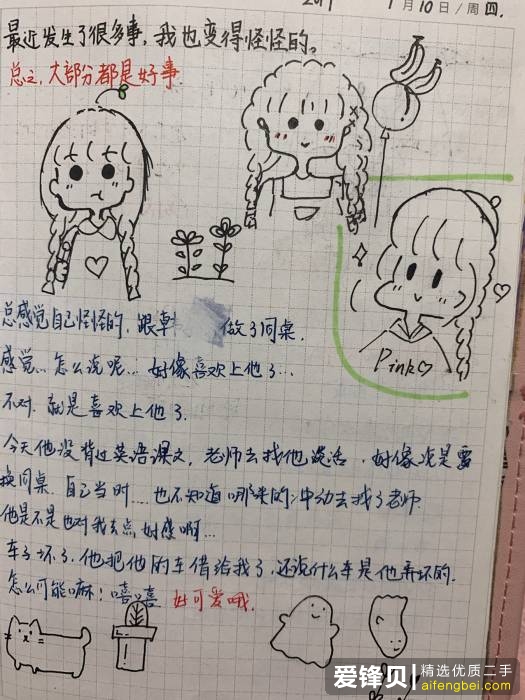 1月10日/周四.
最近发生了很多事,我也变得怪怪的。
总之,大部分都是好事.
Pink
总感觉自己怪怪的,跟韩 做了同桌.
感觉...怎么说呢...好像喜欢上他了...
不对.就是喜欢上他了.
今天他没背过英语课文,老师去找他谈话.好像说是要
换同桌.自己当时....也不知道哪来的冲动去找了老师.
他是不是也对我有点好感啊...
车子坏了.他把他的车借给我了,还说什么车是他弄坏的.
怎么可能嘛!嘻嘻 好可爱哦.
爱锋贝 精选优质二手
aifengbei.com